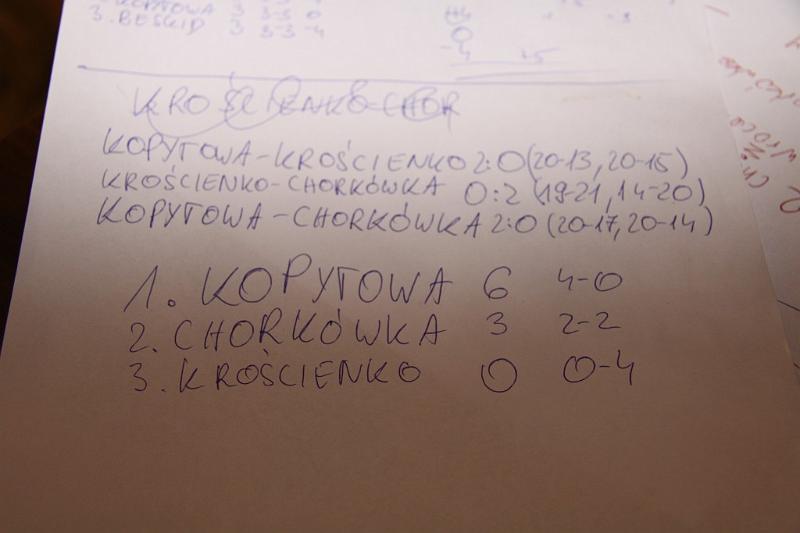 KOPYTOWA 3 3-3 0
3. BESKID 3 3-3 -4
KROŚCIENKO-CHOR
KOPYTOWA-KROŚCIENKO 2:0 (20-13, 20-15)
KROŚCIENKO-CHORKÓWKA 0:2 (19-21, 14-20)
KOPYTOWA-CHORKÓWKA 2:0 (20-17, 20-14)
1. KOPYTOWA 6 4-0
2. CHORKÓWKA 3 2-2
3. KROŚCIENKO 0 0-4